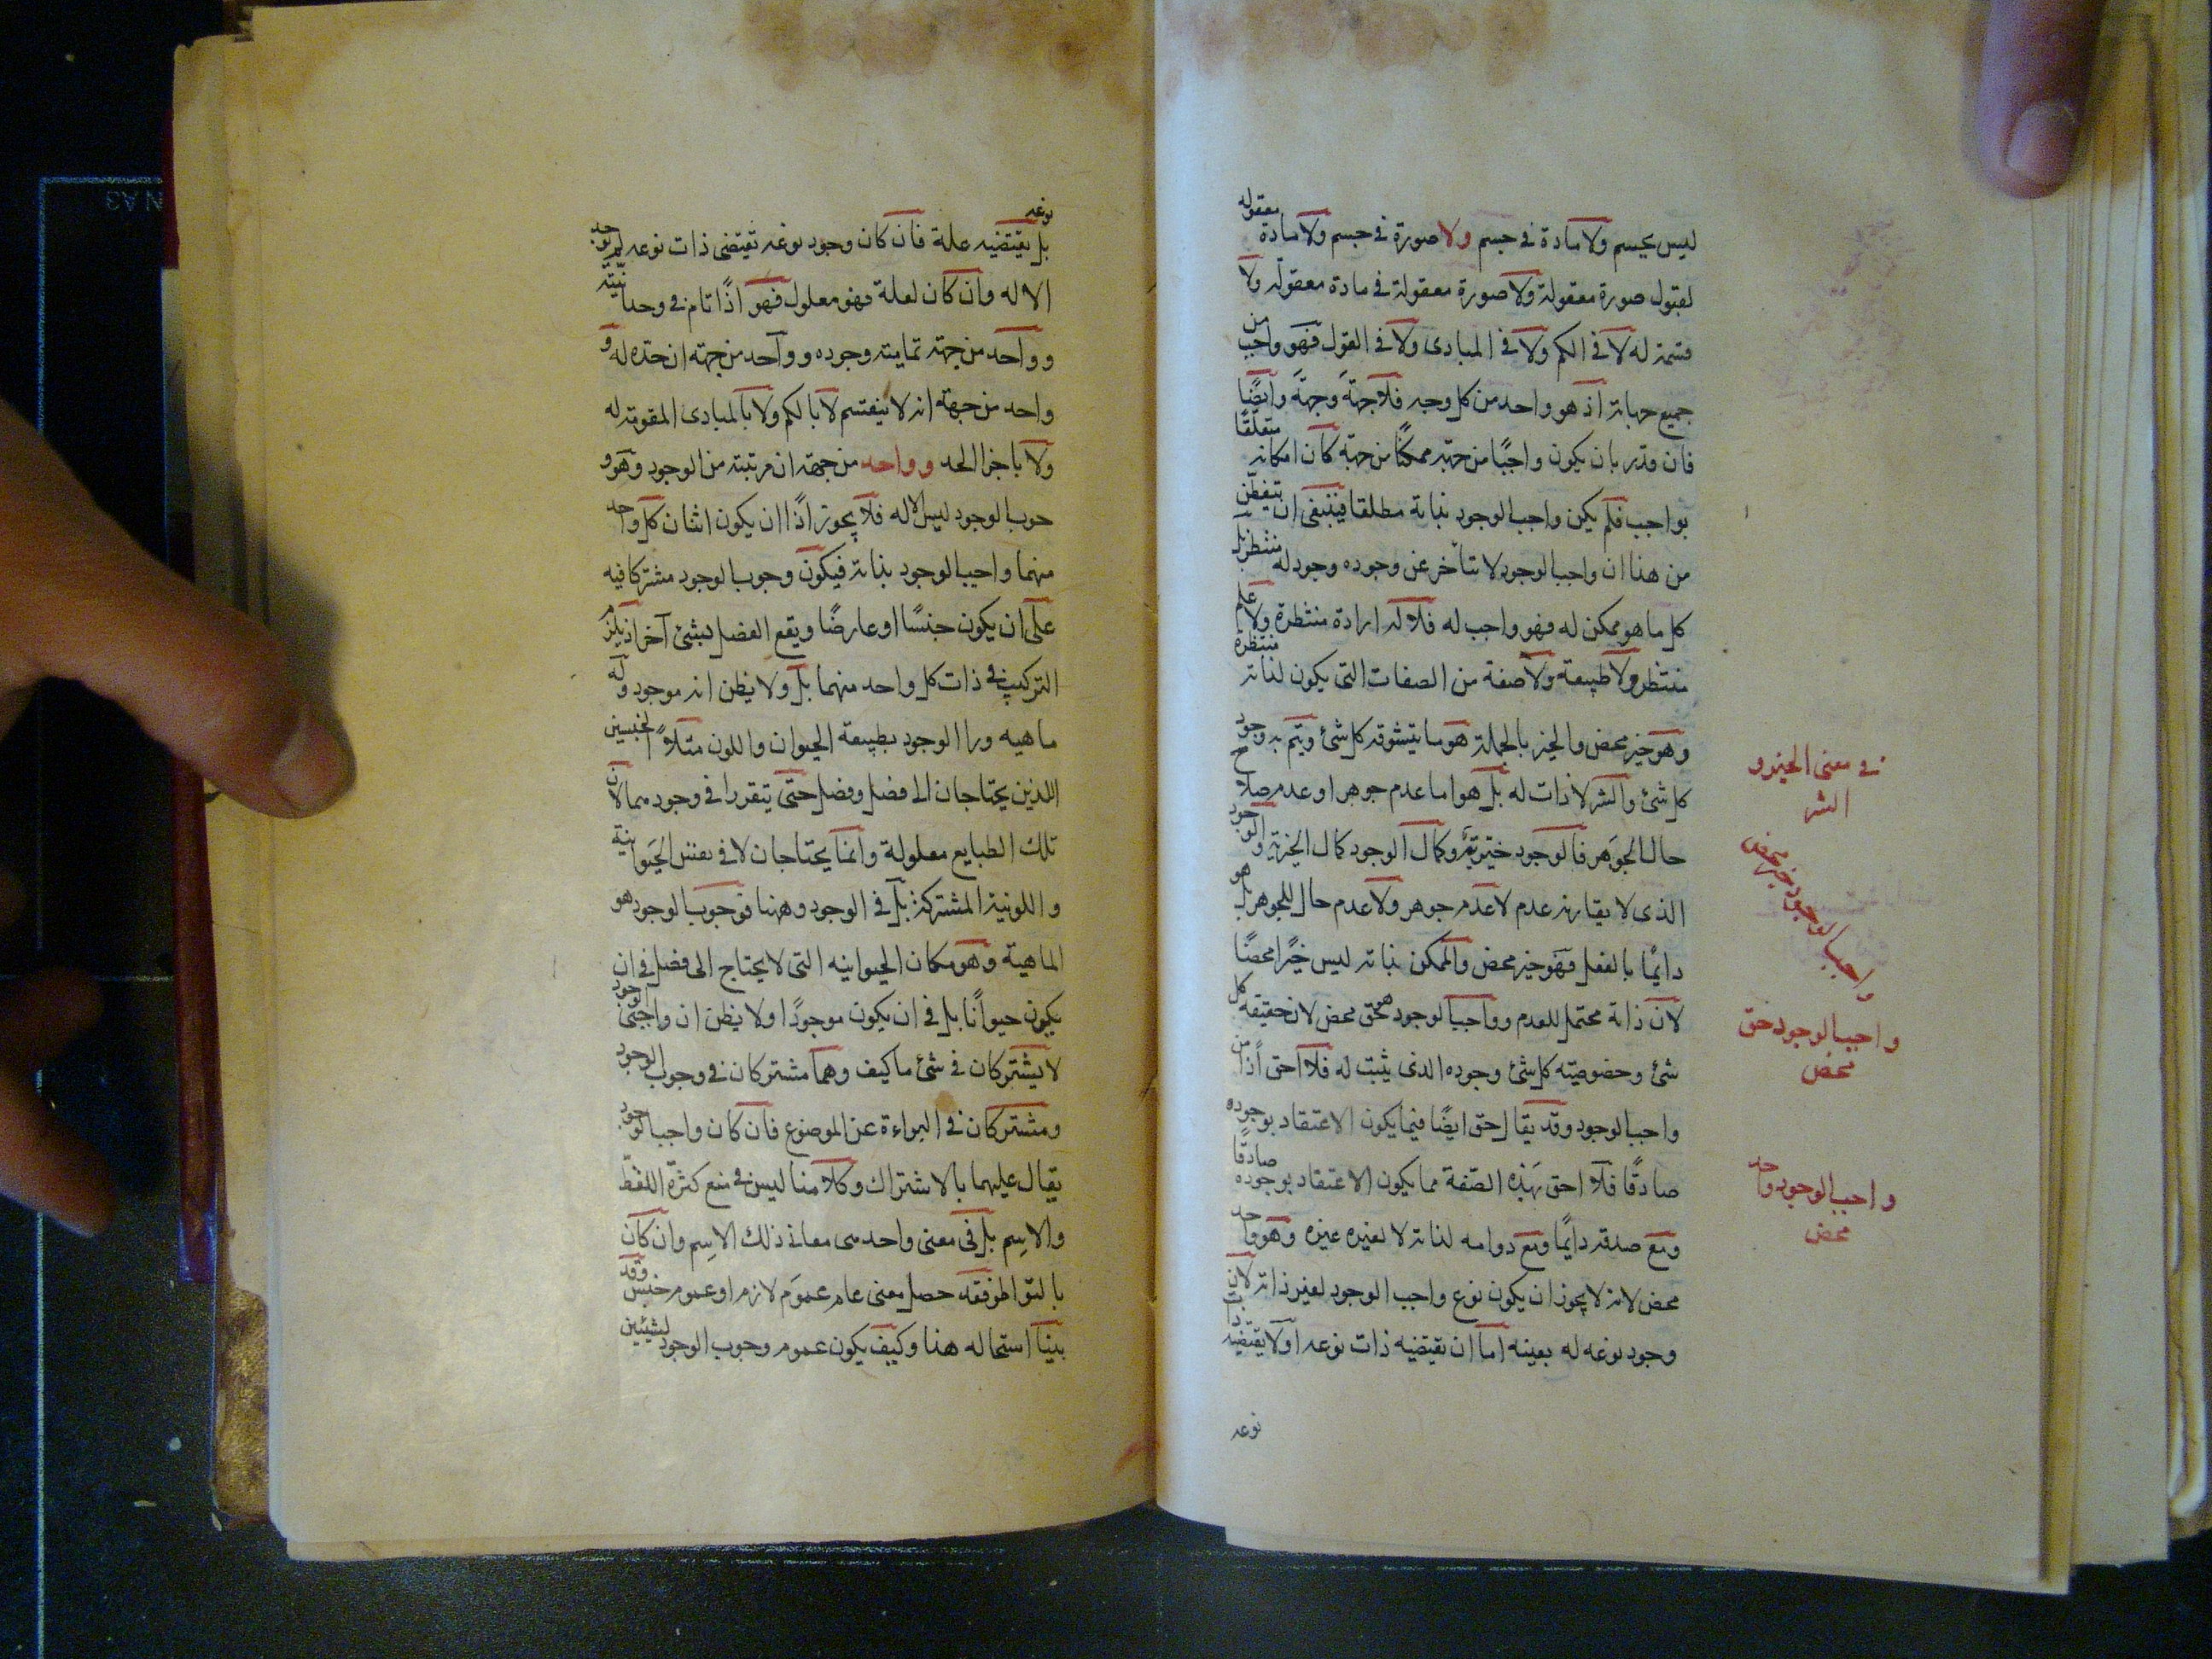 ليس بجسم ولا مادة في جسم ولا صورة في جسم ولا مادة معقوله
لقبول صورة معقولة ولا صورة معقولة في مادة معقولة ولا
قسمة له لا في الكم ولا في المبادى ولا في القول فهو واجب من
جميع جهاته اذ هو واحد من كل وجه فلا جهة وجهة وايضًا
فان قدر بان يكون واجبًا من جهة ممكنًا من جهة كان امكانه متعلقًا
بواجب فلم يكن واجب الوجود بذاته مطلقا فينبغى ان يتفطن
من هذا ان واجب الوجود لا يتأخر عن وجوده وجود له منتظر بل
كل ما هو ممكن له فهو واجب له فلا له ارادة منتظرة ولا علم
منتظر ولا طبيعة ولا صفة من الصفات التى يكون لذاته منتظرة
وهو خير محض والخير بالجملة هو ما يتشوقه كل شئ ويتم به وجود
كل شئ والشر لا ذات له بل هو اما عدم جوهر او عدم صلاح
حال الجوهر فالوجود خيرية وكمال الوجود كمال الخيرية والوجود
الذى لا يقارنه عدم لا عدم جوهر ولا عدم حال للجوهر بل هو
دايمًا بالفعل فهو خير محض والممكن بذاته ليس خيرًا محضًا
لان ذاته محتمل للعدم وواجب الوجود هو حق محض لان حقيقة كل
شئ وخصوصيته كل شئ وجوده الذى يثبت له فلا احق اذًا من
واجب الوجود وقد يقال حق ايضًا فيما يكون الاعتقاد بوجوده
صادقًا فلا احق بهذه الصفة مما يكون الاعتقاد بوجوده صادقًا
ومع صدقه دايمًا ومع دوامه لذاته لا لغيره غيره وهو واحد
محض لانه لا يجوز ان يكون نوع واجب الوجود لغير ذاته لان
وجود نوعه له بعينه اما ان تقتضيه ذات نوعه او لا يقتضيه ذات
نوعه
في معنى الخير و
الشر
واجب الوجود خير محض
واجب الوجود حق
محض
واجب الوجود واحد
محض
نوعه
بل يقتضيه علة فان كان وجود نوعه تقيتضى ذات نوعه لم يوجد
الا له وان كان لعلة فهو معلول فهو اذًا تام في وحدانيته
وواحد من جهة تمامية وجوده وواحد من جهة ان حده له و
واحد من جهة انه لا ينقسم لا بالكم ولا بالمبادى المقومة له
ولا باجزا الحد وواحد من جهة ان مرتبته من الوجود وهو و
جوب الوجود ليس الا له فلا يجوز اذًا ان يكون اثنان كل واحد
منهما واجب الوجود بذاته فيكون وجوب الوجود مشتركا فيه
على ان يكون جنسًا او عارضًا ويقع الفصل بشئ آخر اذ يلزم
التركيب في ذات كل واحد منهما بل ولا يظن انه موجود وله
ماهيه ورا الوجود بطبيعة الحيوان واللون مثلاً الجنسين
اللذين يحتاجان الى فصل وفصل حتى يتقررا في وجودهما لان
تلك الطبايع معلولة وانما يحتاجان لا في نفس الحيوانية
واللونية المشتركة بل في الوجود وههنا فوجوب الوجود هو
الماهية وهو مكان الحيوانيه التى لا يحتاج الى فصل في ان
يكون حيوانًا بل في ان يكون موجودًا ولا يظن ان واجبى الوجود
لا يشتركان في شئ ما كيف وهما مشتركان في وجوب الوجود
ومشتركان في البراءة عن الموضوع فان كان واجب الوجود
يقال عليهما بالاشتراك وكلامنا ليس في منع كثرة اللفظ
والاسم بل في معنى واحد من معانى ذلك الاسم وان كان
بالتواطو فقد حصل معنى عام عموم لازم او عموم جنس وقد
بينا استحاله هذا وكيف يكون عموم وجوب الوجود لشيئين